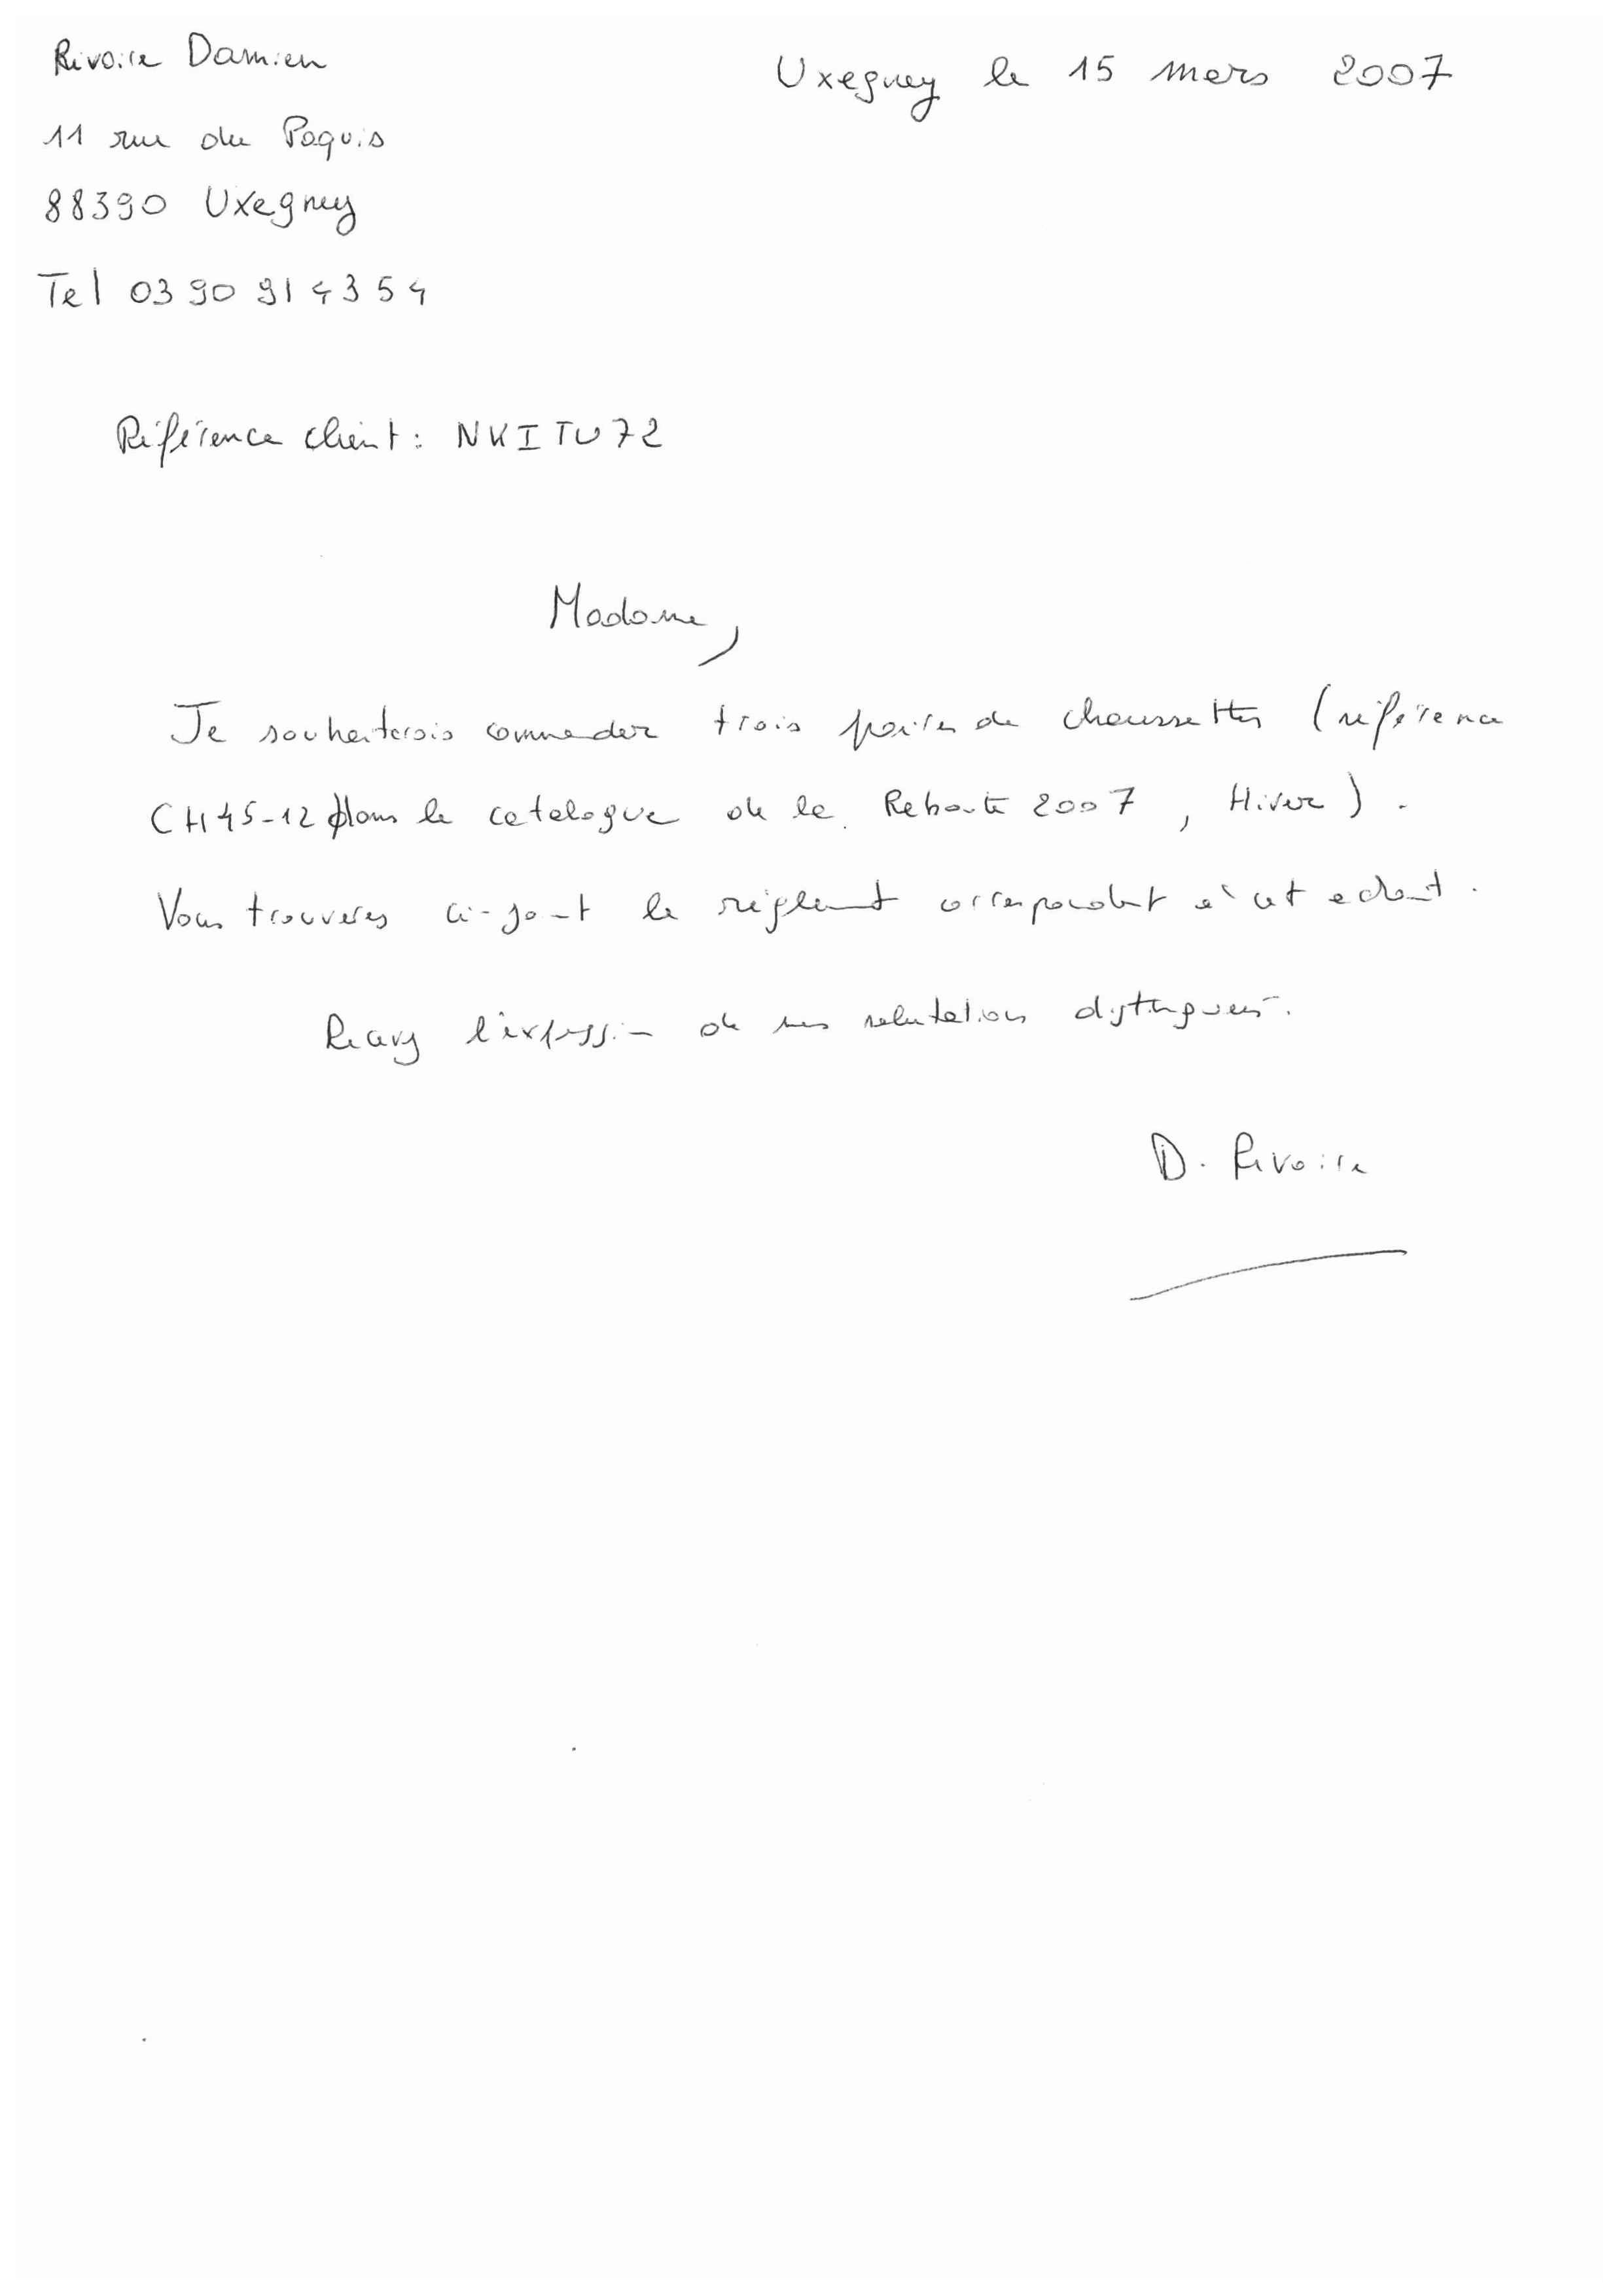 Rivoire Damien
Uxegney le 15 mars 2007
11 rue du Paquis
88390 Uxegney
Tel 03 90 91 43 54
Référence client : NKITU72
Madame,
Je souhaiterais commander trois paires de chaussettes (référence
CH45-12 dans le catalogue de la Redoute 2007, Hiver).
Vous trouverez ci-joint le règlement correspondant à cet achat.
Recevez l'expression de mes salutations distinguées.
D. Rivoire